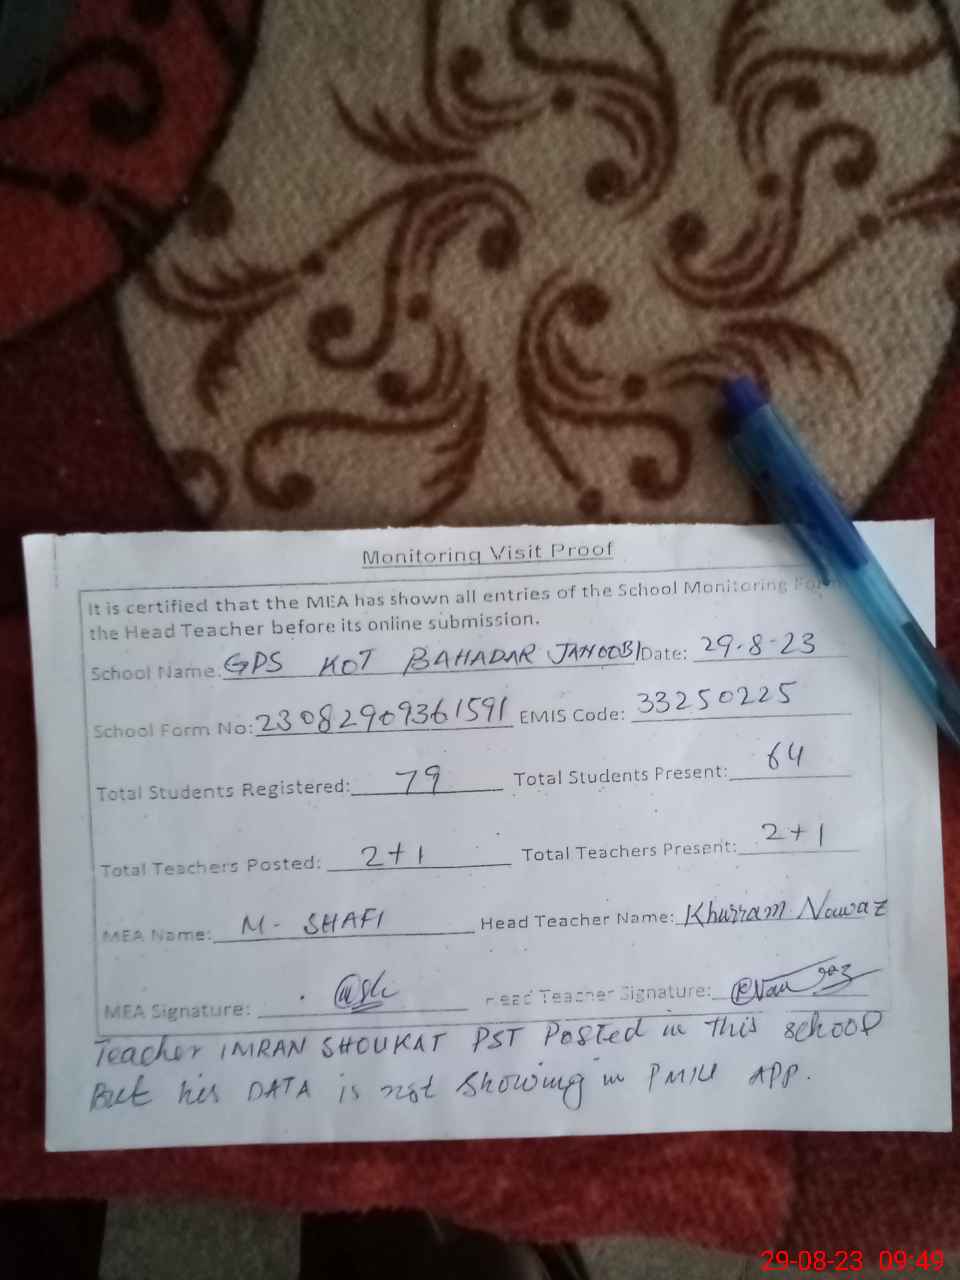 Monitoring Visit Proof
It is certified that the MEA has shown all entries of the School Monitoring Form
the Head Teacher before its online submission.
School Name: GPS KOT BAHADAR JANOOBI Date: 29-8-23
School Form No: 23082909361591 EMIS Code: 33250225
Total Students Registered: 79 Total Students Present: 64
Total Teachers Posted: 2+1 Total Teachers Present: 2+1
MEA Name: M- SHAFI Head Teacher Name: Khurram Nawaz
MEA Signature: Head Teacher Signature:
Teacher IMRAN SHOUKAT PST Posted in this school
But his DATA is not showing in PMIU APP.
29-08-23 09:49